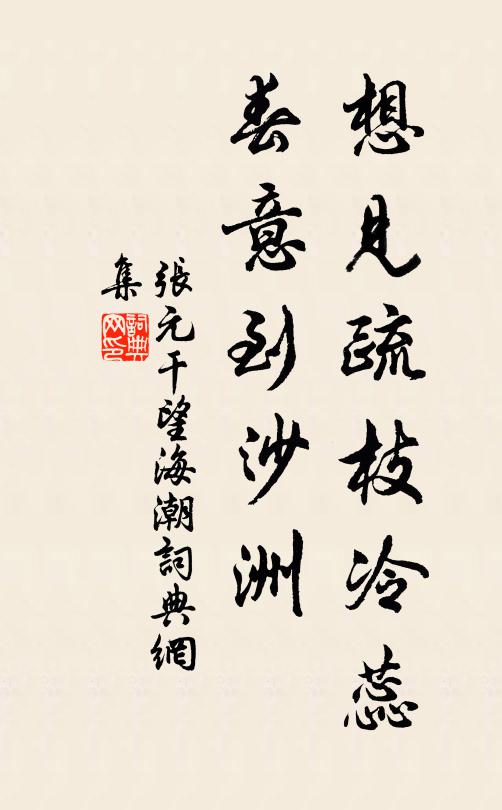 想見疏枝冷蕊
春意到沙洲
張元干望海潮詞典網
集
詞典
网印